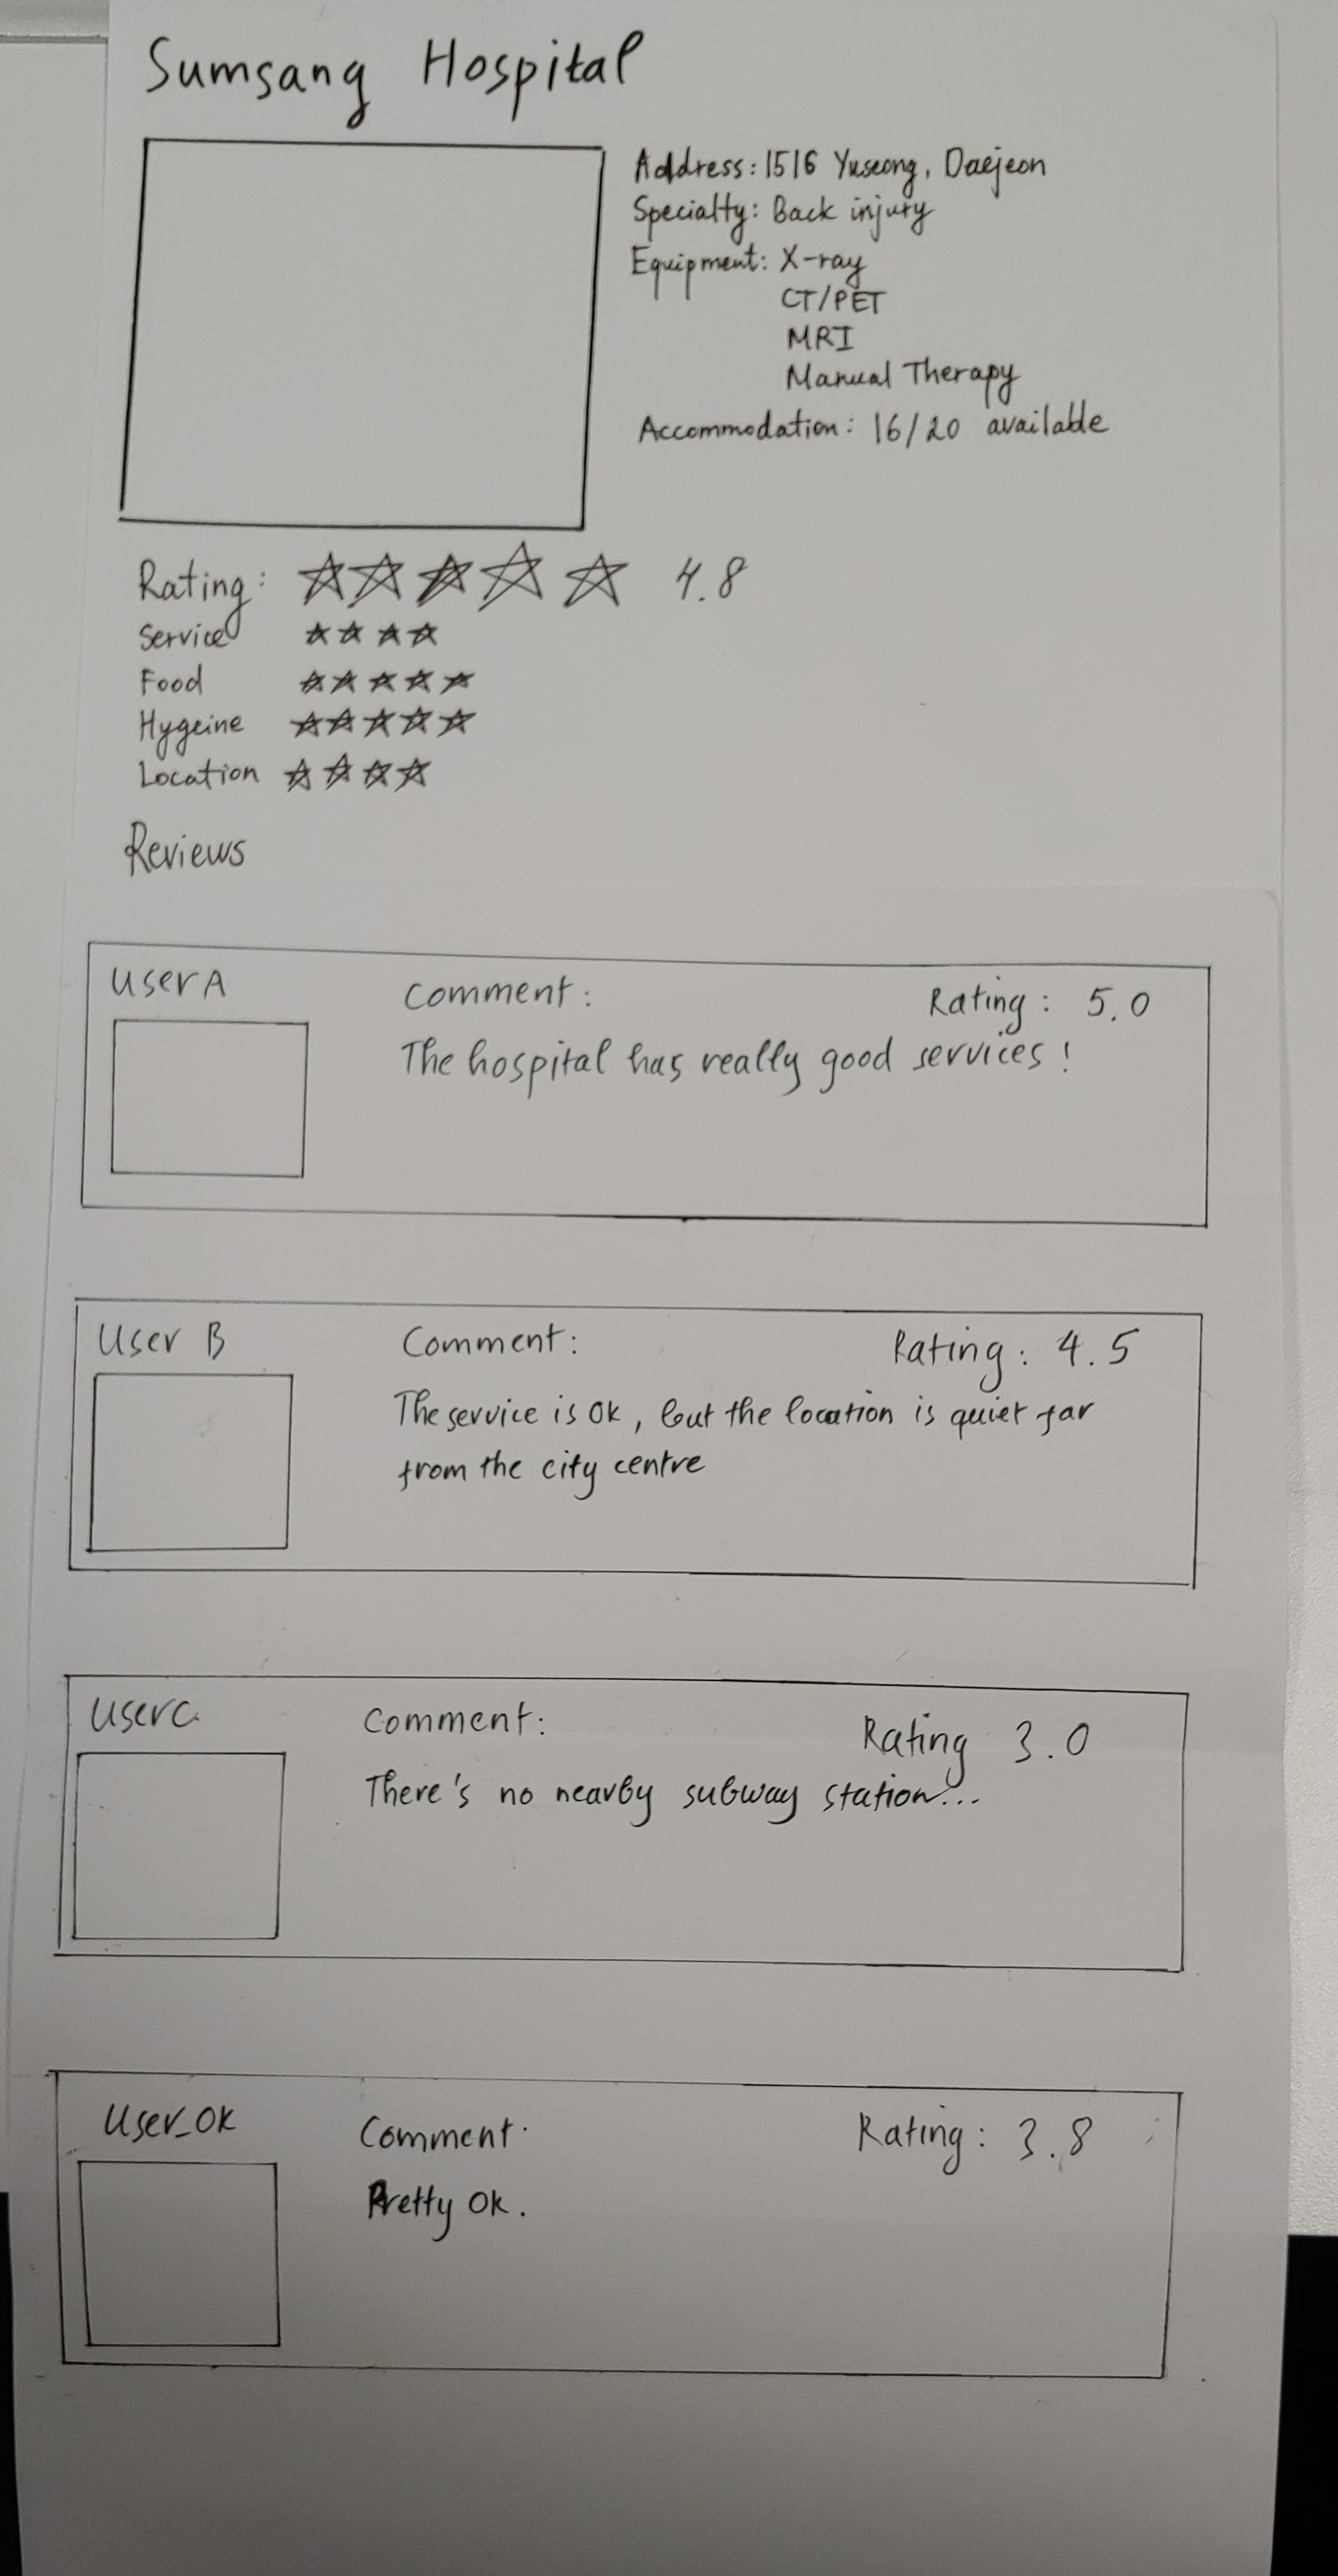 Sumsang Hospital
Address: 1516 Yuseong, Daejeon
Specialty: Back injury
Equipment: X-ray
CT/PET
MRI
Manual Therapy
Accommodation: 16/20 available
Rating: 4.8
Service
Food
Hygeine
Location
Reviews
User A
Comment:
Rating: 5.0
The hospital has really good services!
User B
Comment:
Rating: 4.5
The service is ok, but the location is quiet far
from the city centre
User C
Comment:
Rating 3.0
There's no nearby subway station...
User_OK
Comment:
Rating: 3.8
Pretty ok.